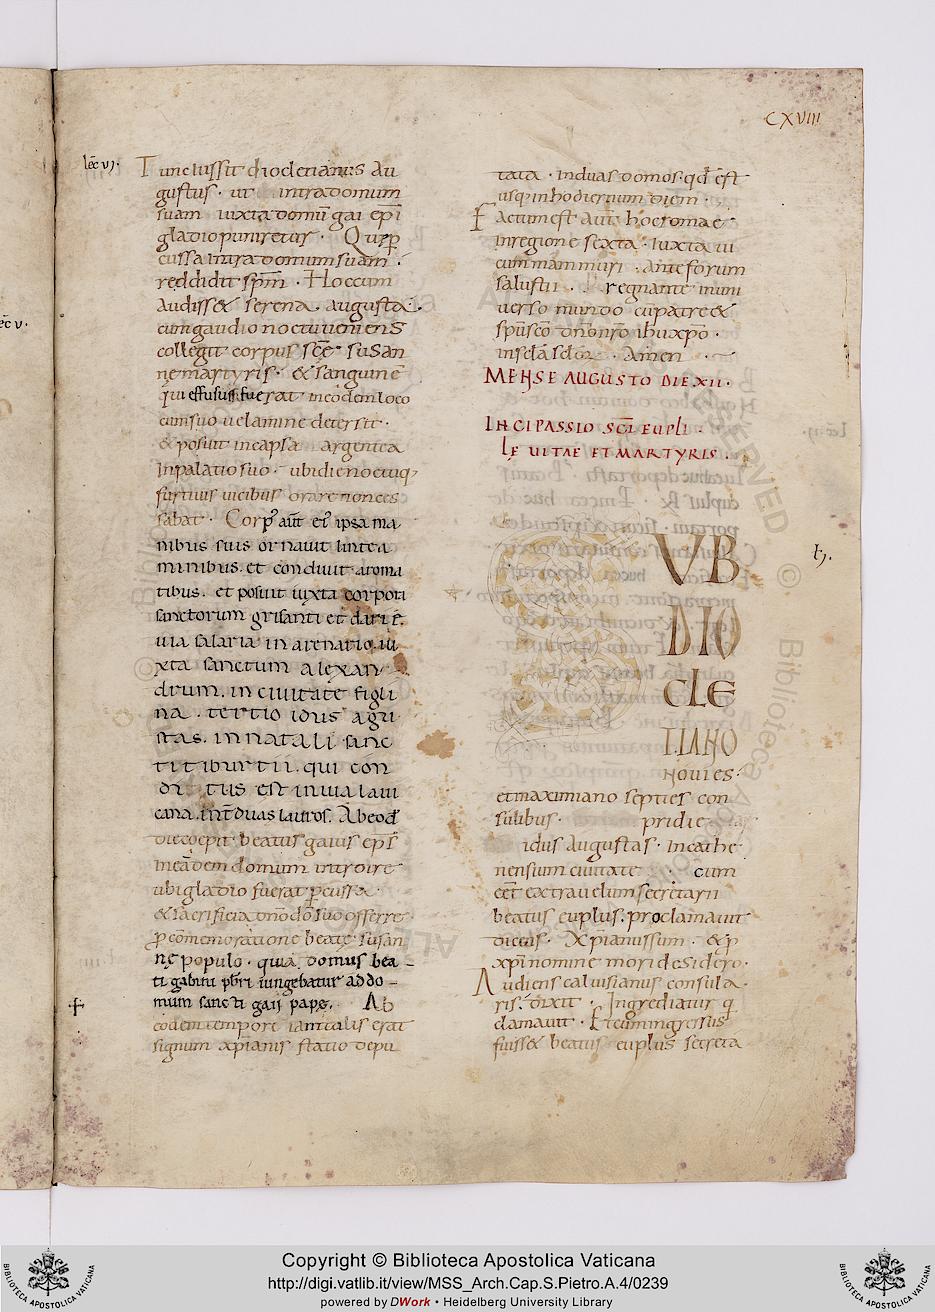 CXVIII
lec vj.
Tunc iussit dioclitianus au
gustus · ut intra domum
suam iuxta domū gai epī
gladio puniretur · Quę ꝑ
cussa intra domum suam ·
reddidit spm̄ · Hoc cum
audiss& serena · augusta ·
cum gaudio noctu ueniens
collegit corpus scę susan
nę martyris · & sanguinē
qui effusus fuerat in eodem loco
cum suo uelamine detersit ·
& posuit in capsa argentea
In palatio suo · ubi die noctuq;
furtiuis uicibus orare non ces
sabat · Corpꝰ aūt eiꝰ ipsa ma
nibus suis ornauit lintea
minibus · et condiuit aroma
tibus · et posuit iuxta corpora
sanctorum grisanti et darię.
uia salaria in arenario · iu
xta sanctum alexan
drum · in ciuitate figli
na · tertio idus agu
stas · in natali sanc
ti tiburtii · qui con
di tus est in uia laui
cana · int̄ duas lauros. Ab eod
die coepit beatus gaius epīs
in eadem domum introire
ubi gladio fuerat ꝑcussa ·
& sacrificia dnō dō suo offerre
ꝓ comemoratione beatę susan
nę populo · quia domus bea
ti gabini pbri iungebatur ad do
mum sancti gaii papę. Ab
eodem tempore ianitalis erat
signum xpianis statio depu
tata · in duas domos · qd est
usq; in hodiernum diem ·
Factum est aut hoc romae
in regione sexta · iuxta ui
cum mammuri · ante forum
salustii · regnante in uni
uerso mundo cū patre &
spū scō dnō nrō ihu xpō ·
in scla sclor · Amen ·
MENSE AUGUSTO DIE XII ·
INCI PASSIO SCI EUPLI ·
LE UITAE ET MARTYRIS .
SVB
DIO
CLE
TIANO
NOVIES ·
et maximiano septies con
sulibus · pridie
idus augustas · in cathe
nensium ciuitate · cum
eēt extra uelum secretarii
beatus euplus · proclamauit
dicens · Xpianus sum · & ꝓ
xpi nomine mori desidero ·
Audiens caluisianus consula
ris · dixit · Ingrediatur q
clamauit · Et cum ingressus
fuiss& beatus euplus secreta